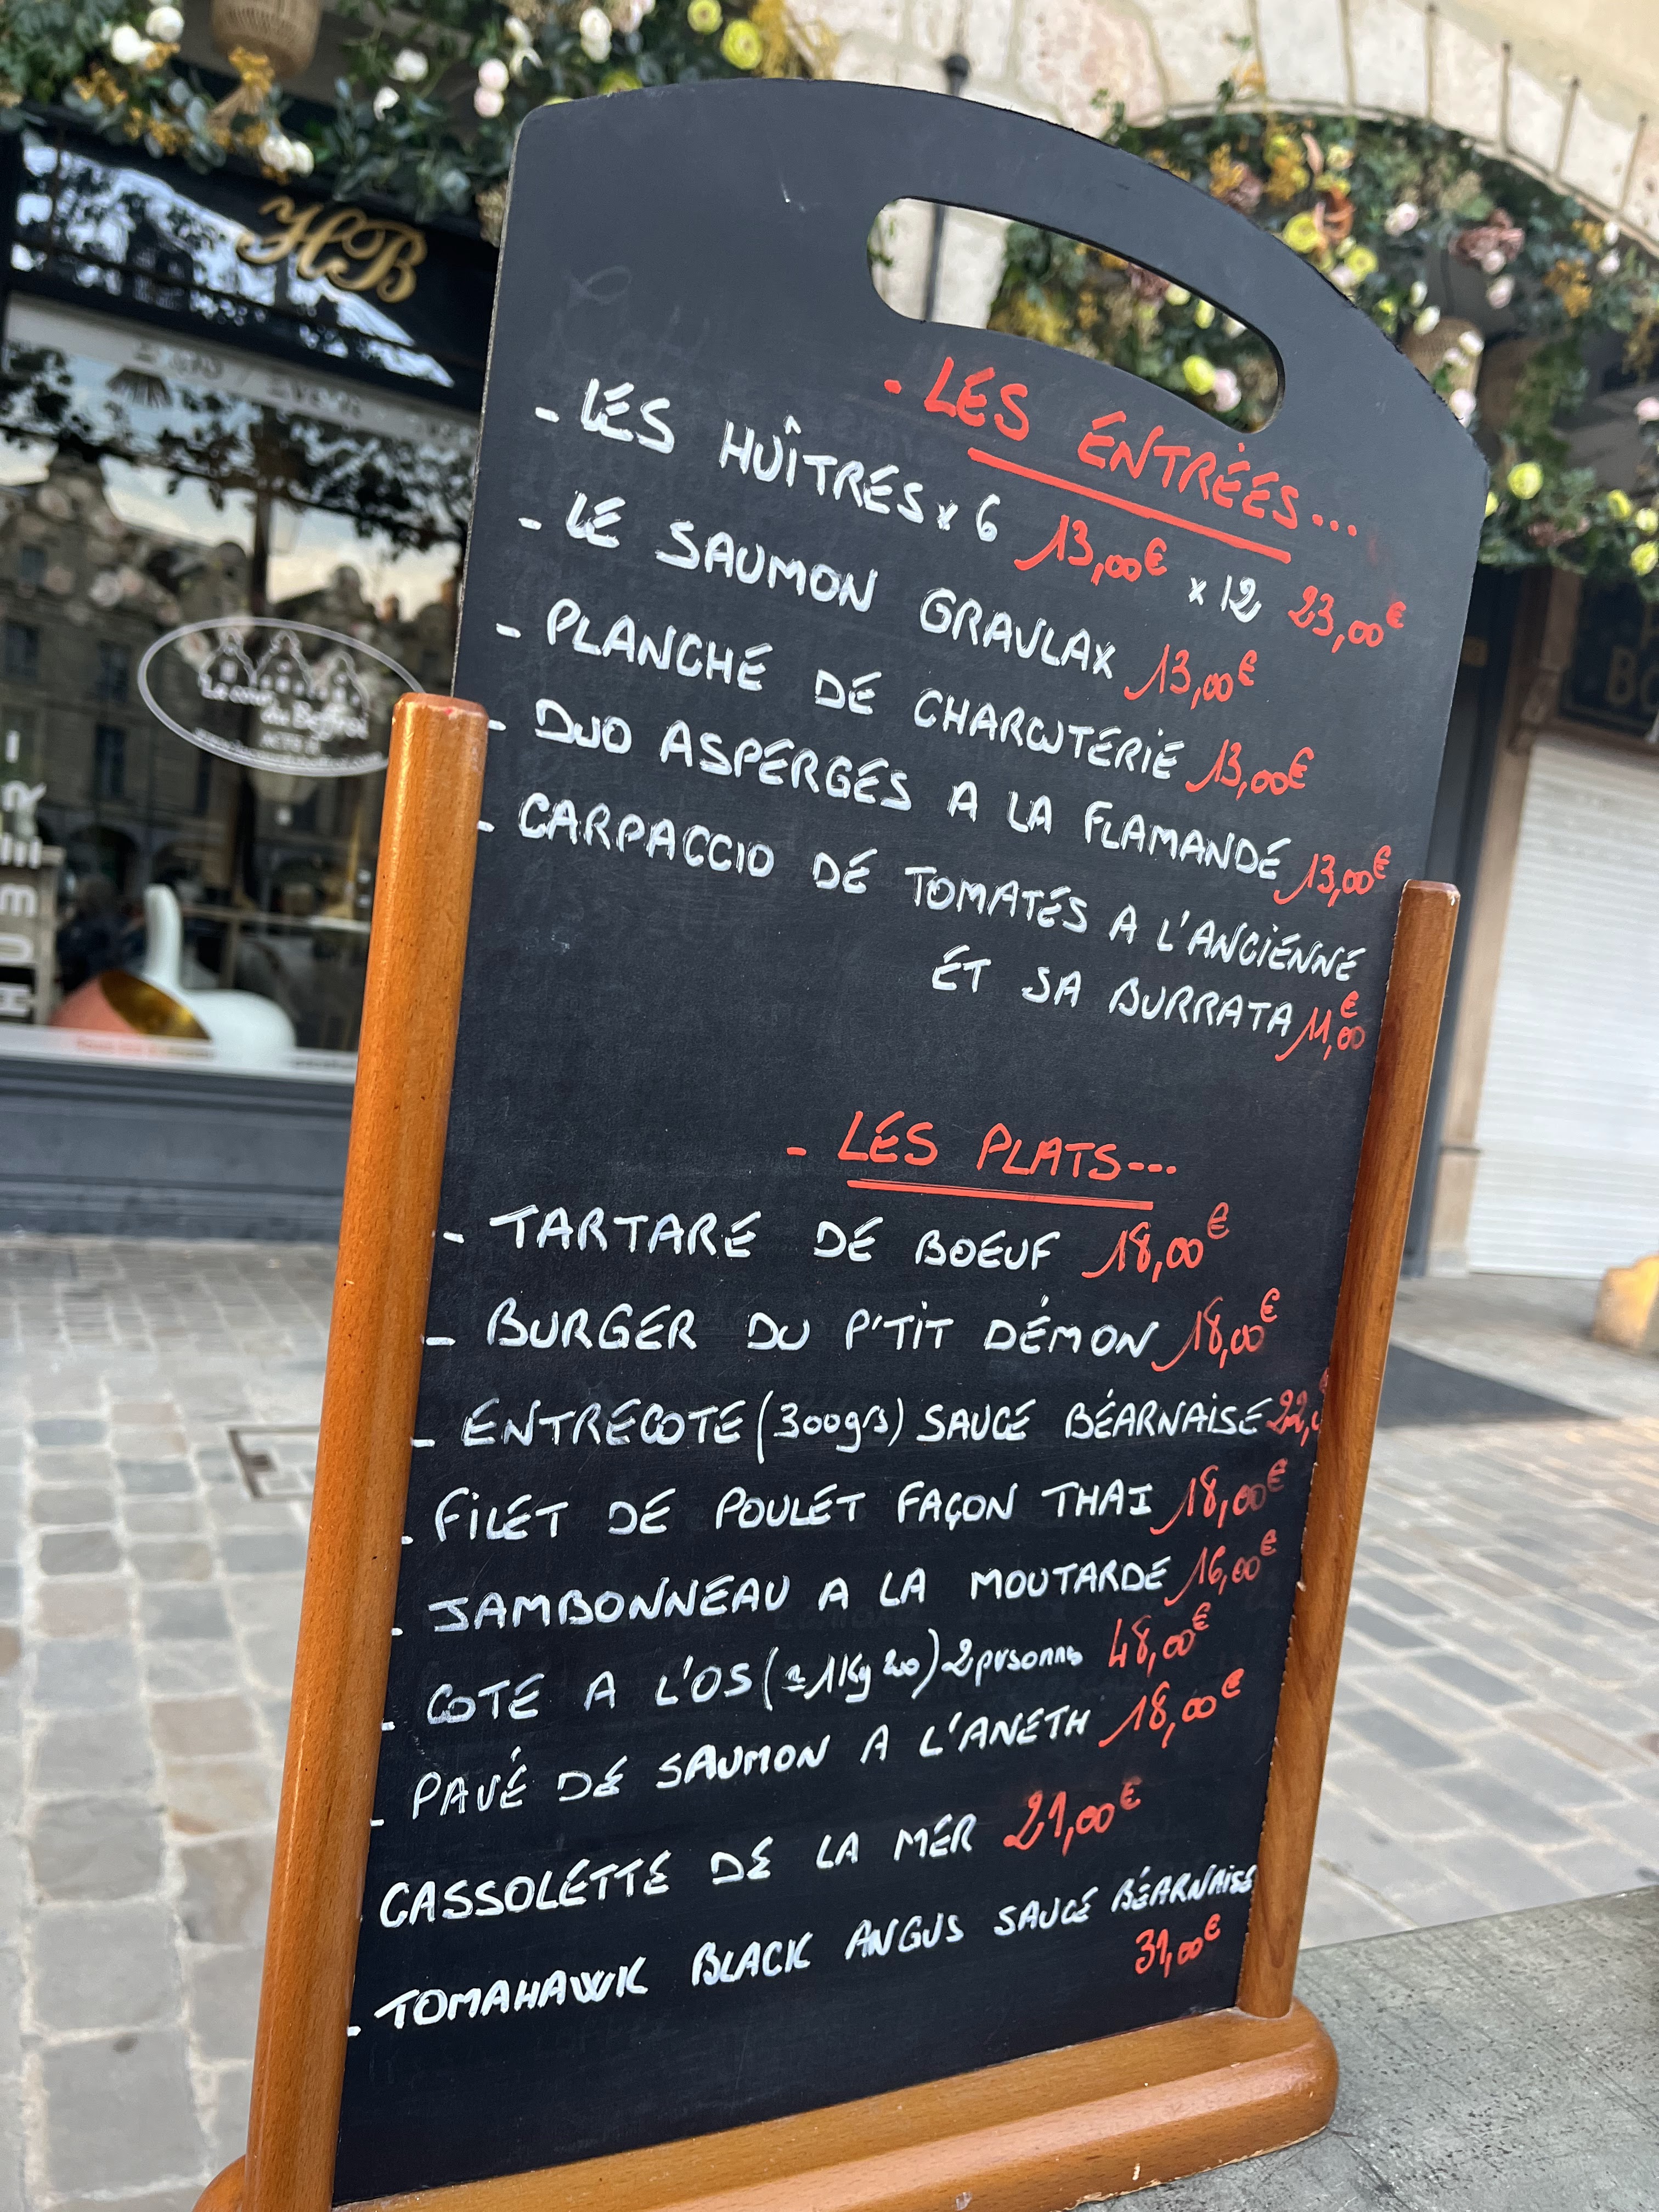 HB
La cour
du Beffroi
- LES ENTRÉES...
- LES HUÎTRES x 6 13,00€ x 12 23,00€
- LE SAUMON GRAVLAX 13,00€
- PLANCHE DE CHARCUTERIE 13,00€
- DUO ASPERGES A LA FLAMANDE 13,00€
- CARPACCIO DE TOMATES A L'ANCIENNE
ET SA BURRATA 11,00€
- LES PLATS...
- TARTARE DE BOEUF 18,00€
- BURGER DU P'TIT DÉMON 18,00€
- ENTRECOTE (300grs) SAUCE BÉARNAISE 22,
- FILET DE POULET FAÇON THAI 18,00€
- JAMBONNEAU A LA MOUTARDE 16,00€
- COTE A L'OS (± 1Kg 200) 2 personnes 48,00€
- PAVÉ DE SAUMON A L'ANETH 18,00€
- CASSOLETTE DE LA MER 21,00€
- TOMAHAWK BLACK ANGUS SAUCE BÉARNAISE
31,00€